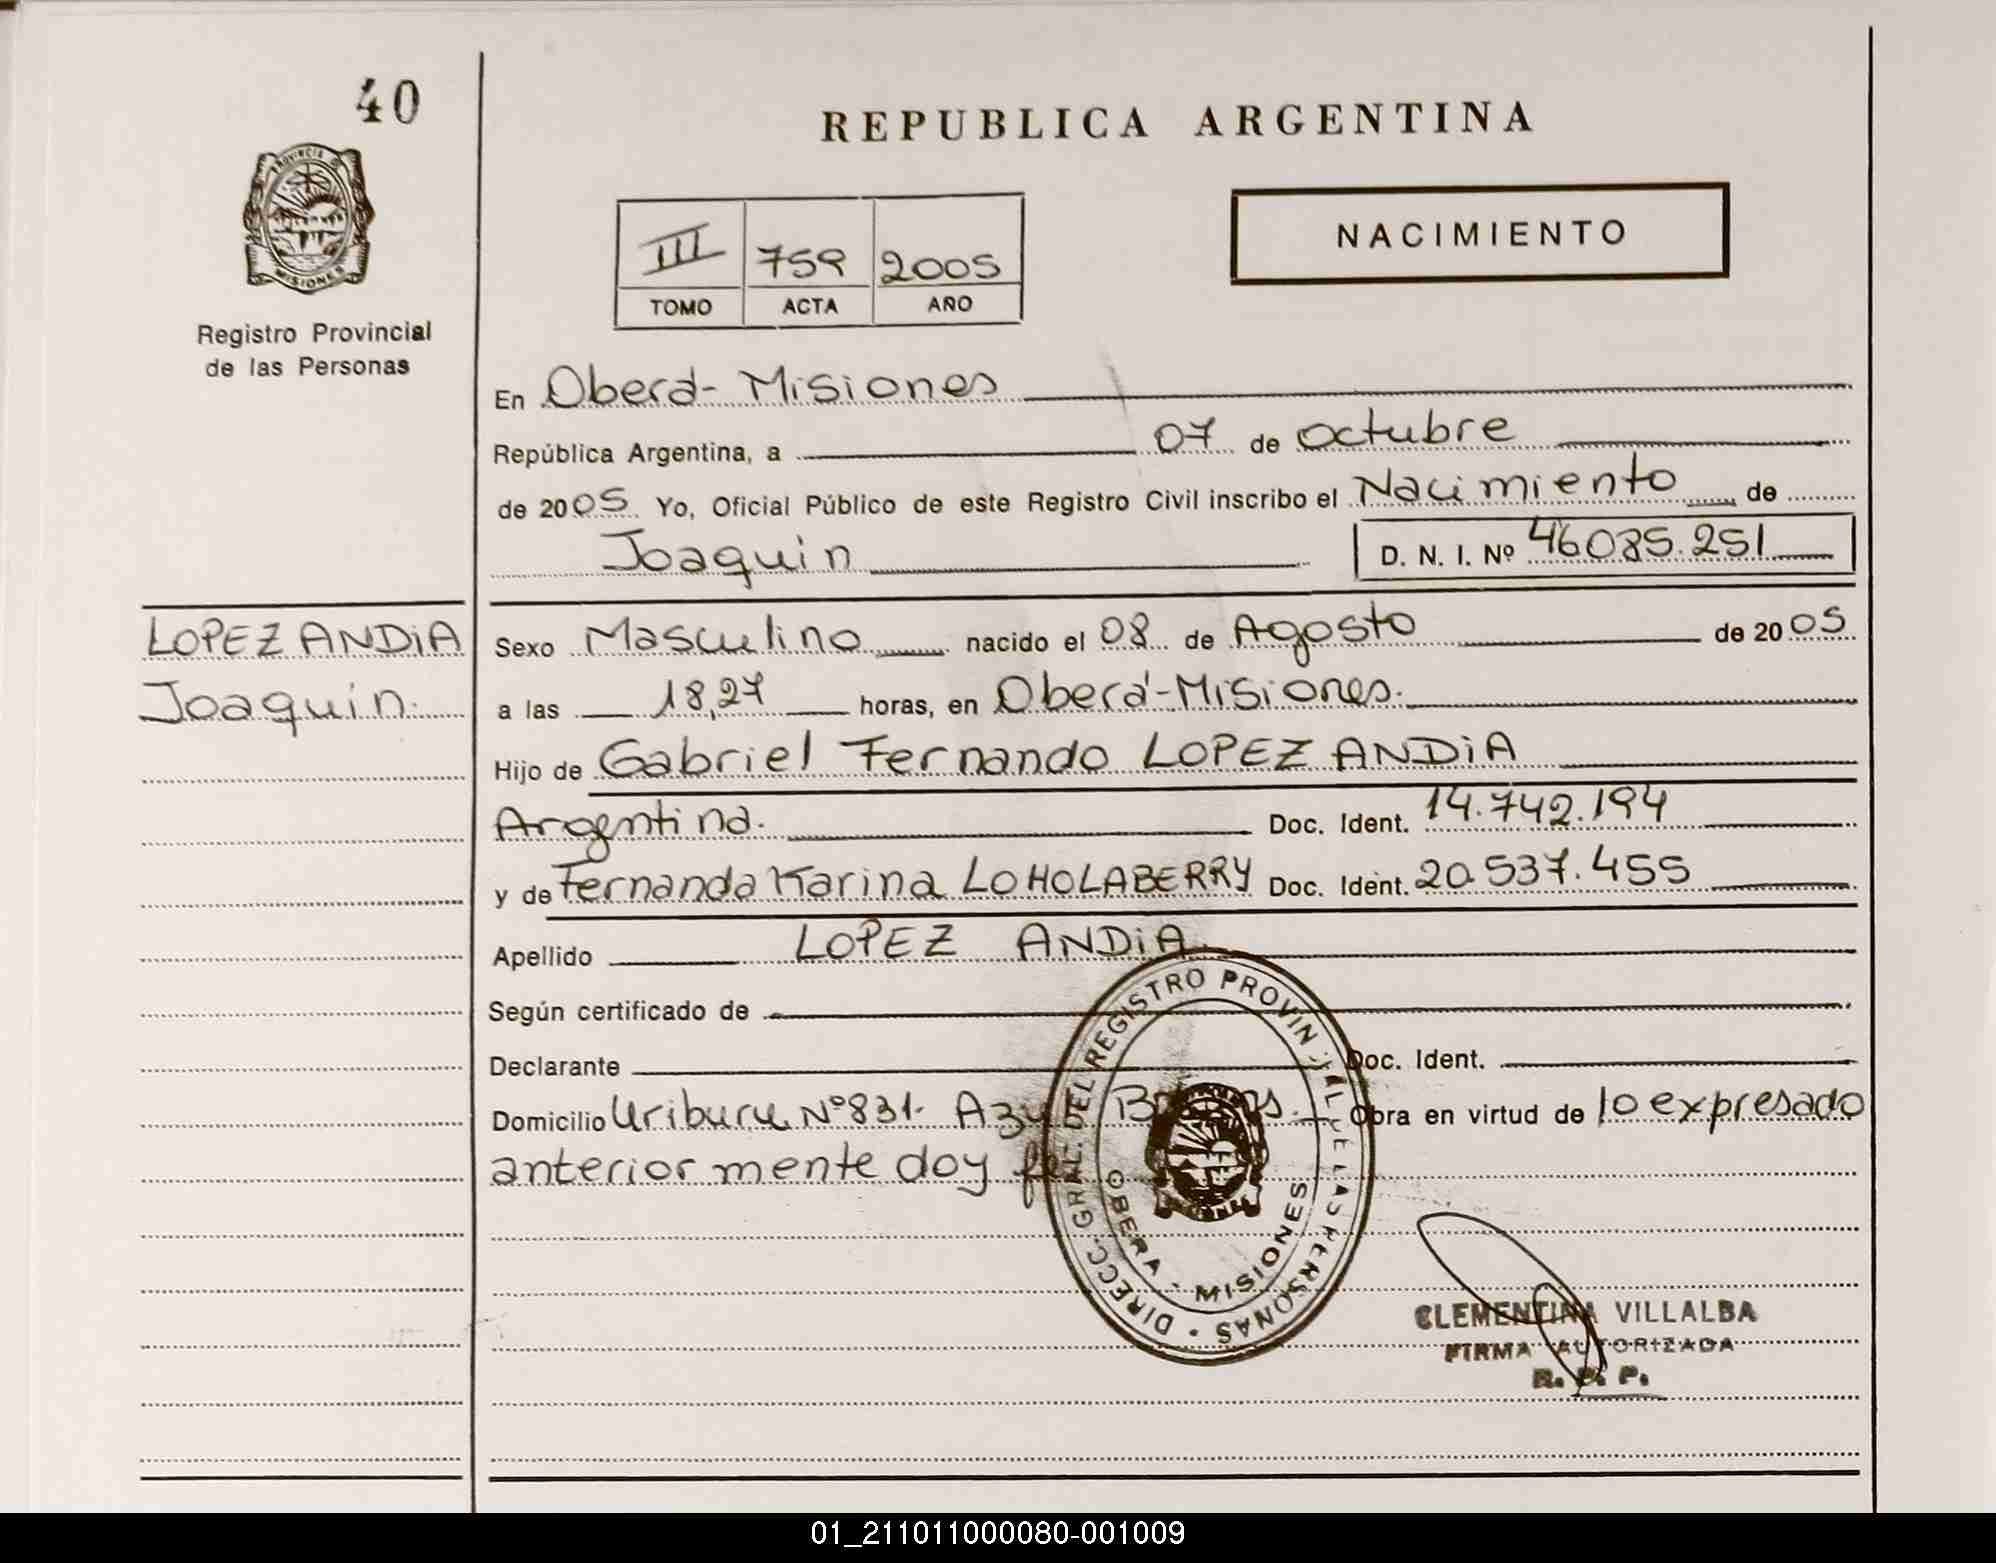 40
REPUBLICA ARGENTINA
PROVINCIA D
MISIONES
Registro Provincial
de las Personas
NACIMIENTO
III 759 2005
TOMO ACTA AÑO
En Oberá- Misiones
República Argentina, a 07 de octubre
de 2005 Yo, Oficial Público de este Registro Civil inscribo el Nacimiento de
Joaquin D. N. I. Nº 46085.251
LOPEZ ANDiA
Joaquin.
Sexo Masculino nacido el 08 de Agosto de 2005
a las 18,27 horas, en Oberá-Misiones.
Hijo de Gabriel Fernando LOPEZ ANDiA
Argentina. Doc. Ident. 14.742.194
y de Fernanda Karina LOHOLABERRY Doc. Ident. 20.537.455
Apellido LOPEZ ANDiA.
Según certificado de
Declarante Doc. Ident.
Domicilio Uriburu Nº831. Obra en virtud de lo expresado
anterior mente doy fe
DIRECC. GRAL. DEL REGISTRO PROVINCIAL DE LAS PERSONAS
OBERA - MISIONES
CLEMENTINA VILLALBA
FIRMA AUTORIZADA
R. P. P.
01_211011000080-001009